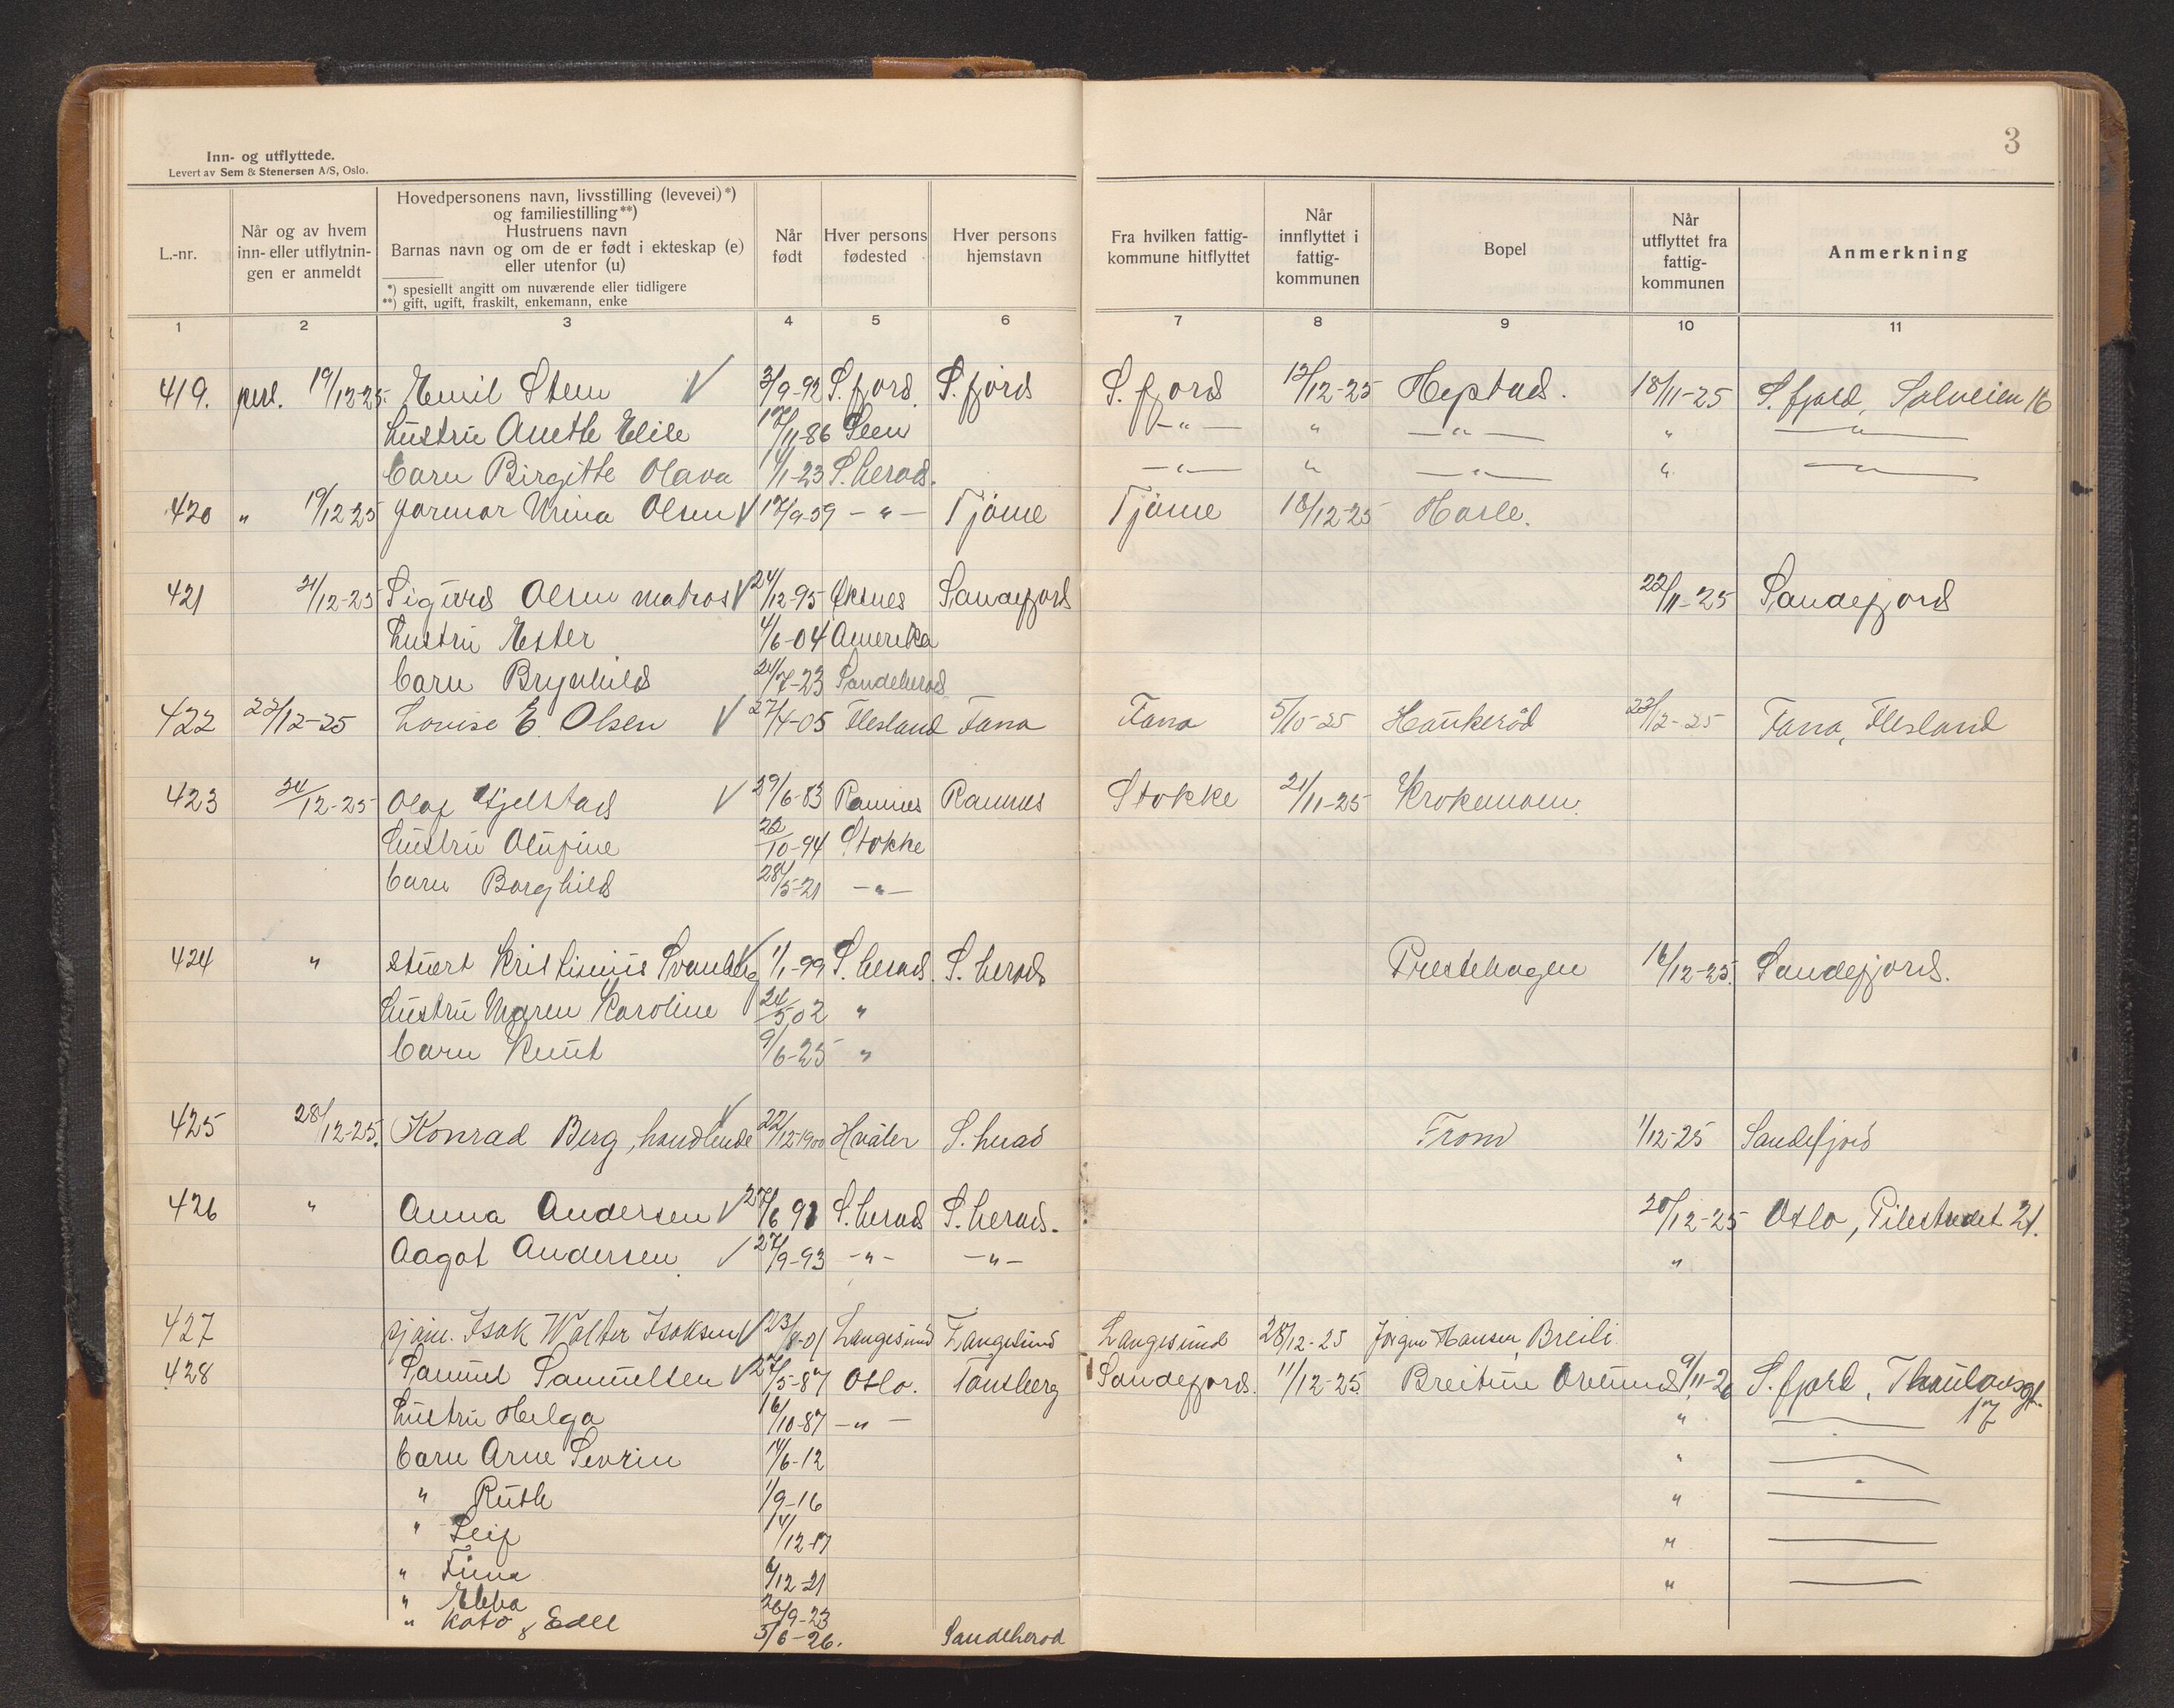 3
Inn- og utflyttede.
Levert av Sem & Stenersen A/S, Oslo.
L.-nr.
Når og av hvem inn- eller utflytnin- gen er anmeldt
Hovedpersonens navn, livsstilling (levevei)*)
og familiestilling**)
Hustruens navn
Barnas navn og om de er født i ekteskap (e)
eller utenfor (u)
*) spesiellt angitt om nuværende eller tidligere
**) gift, ugift, fraskilt, enkemann, enke
Når født
Hver persons fødested
Hver persons hjemstavn
Fra hvilken fattig- kommune hitflyttet
Når innflyttet i fattig- kommunen
Bopel
Når utflyttet fra fattig- kommunen
Anmerkning
1 2 3 4 5 6 7 8 9 10 11
419. 19/12-25. Emil Stem 3/9-92 S.fjord. S.fjord S.fjord 12/12-25 18/11-25 S.fjord, Solveien 16
hustru Anethe Elise 17/11-86 Seem -"- " -"- " -"-
barn Birgitte Olava 1/1-23 S.herad. -"- " -"- " -"-
420 " 19/12 25 Olsen 17/9-09 -"- Tjøme Tjøme 18/12-25 Hasle.
421 21/12-25 Sigurd Olsen matros 24/12-95 Øksnes Sandefjord 22/11-25 Sandefjord
hustru Ester 4/6-04 Amerika
barn Brynhild 24/7-23 Sandeherad
422 22/12-25 Lovise E. Olsen 27/4-05 Flesland Fana Fana 5/10-25 Haukerød 22/12-25 Fana, Flesland
423 24/12-25 Olaf Gjelstad 29/6-83 Ramnes Ramnes Stokke 21/11-25 Krokemoen.
hustru Olufine 22/10-94 Stokke
barn Borghild 28/5-21 -"-
424 " stuert Kristinius Svanberg 1/1-99 S.herad. S.herad Prestehagen 16/12-25. Sandefjord.
hustru Maren Karoline 24/5 02 "
barn Knut 9/6-25 "
425 28/12-25. Konrad Berg, handlende 22/12-1900 Hvaler S.herad From 1/12-25 Sandefjord
426 " Anna Andersen 27/6 91 S.herad S.herad. 20/12-25 Oslo, Pilestredet 21.
Aagot Andersen 27/9-93 -"- -"- "
427 sjøm. Isak Walter Isaksen 23/8-01 Langesund Langesund Langesund 28/12-25 Jørgen Hansen, Breili
428 Samuel Samuelsen 27/5-87 Oslo. Tønsberg Sandefjord. 11/12-25 9/11-26 S.fjord, Thaulowsgt. 17
hustru Helga 16/10-87 -"- "
barn Arne Sevrin 14/6-12 "
" Ruth 1/9-16 "
" Leif 14/12-17 "
" 6/12-21 "
" Ebba 26/9-23
" Kato & Edel 5/6-26. Sandeherad